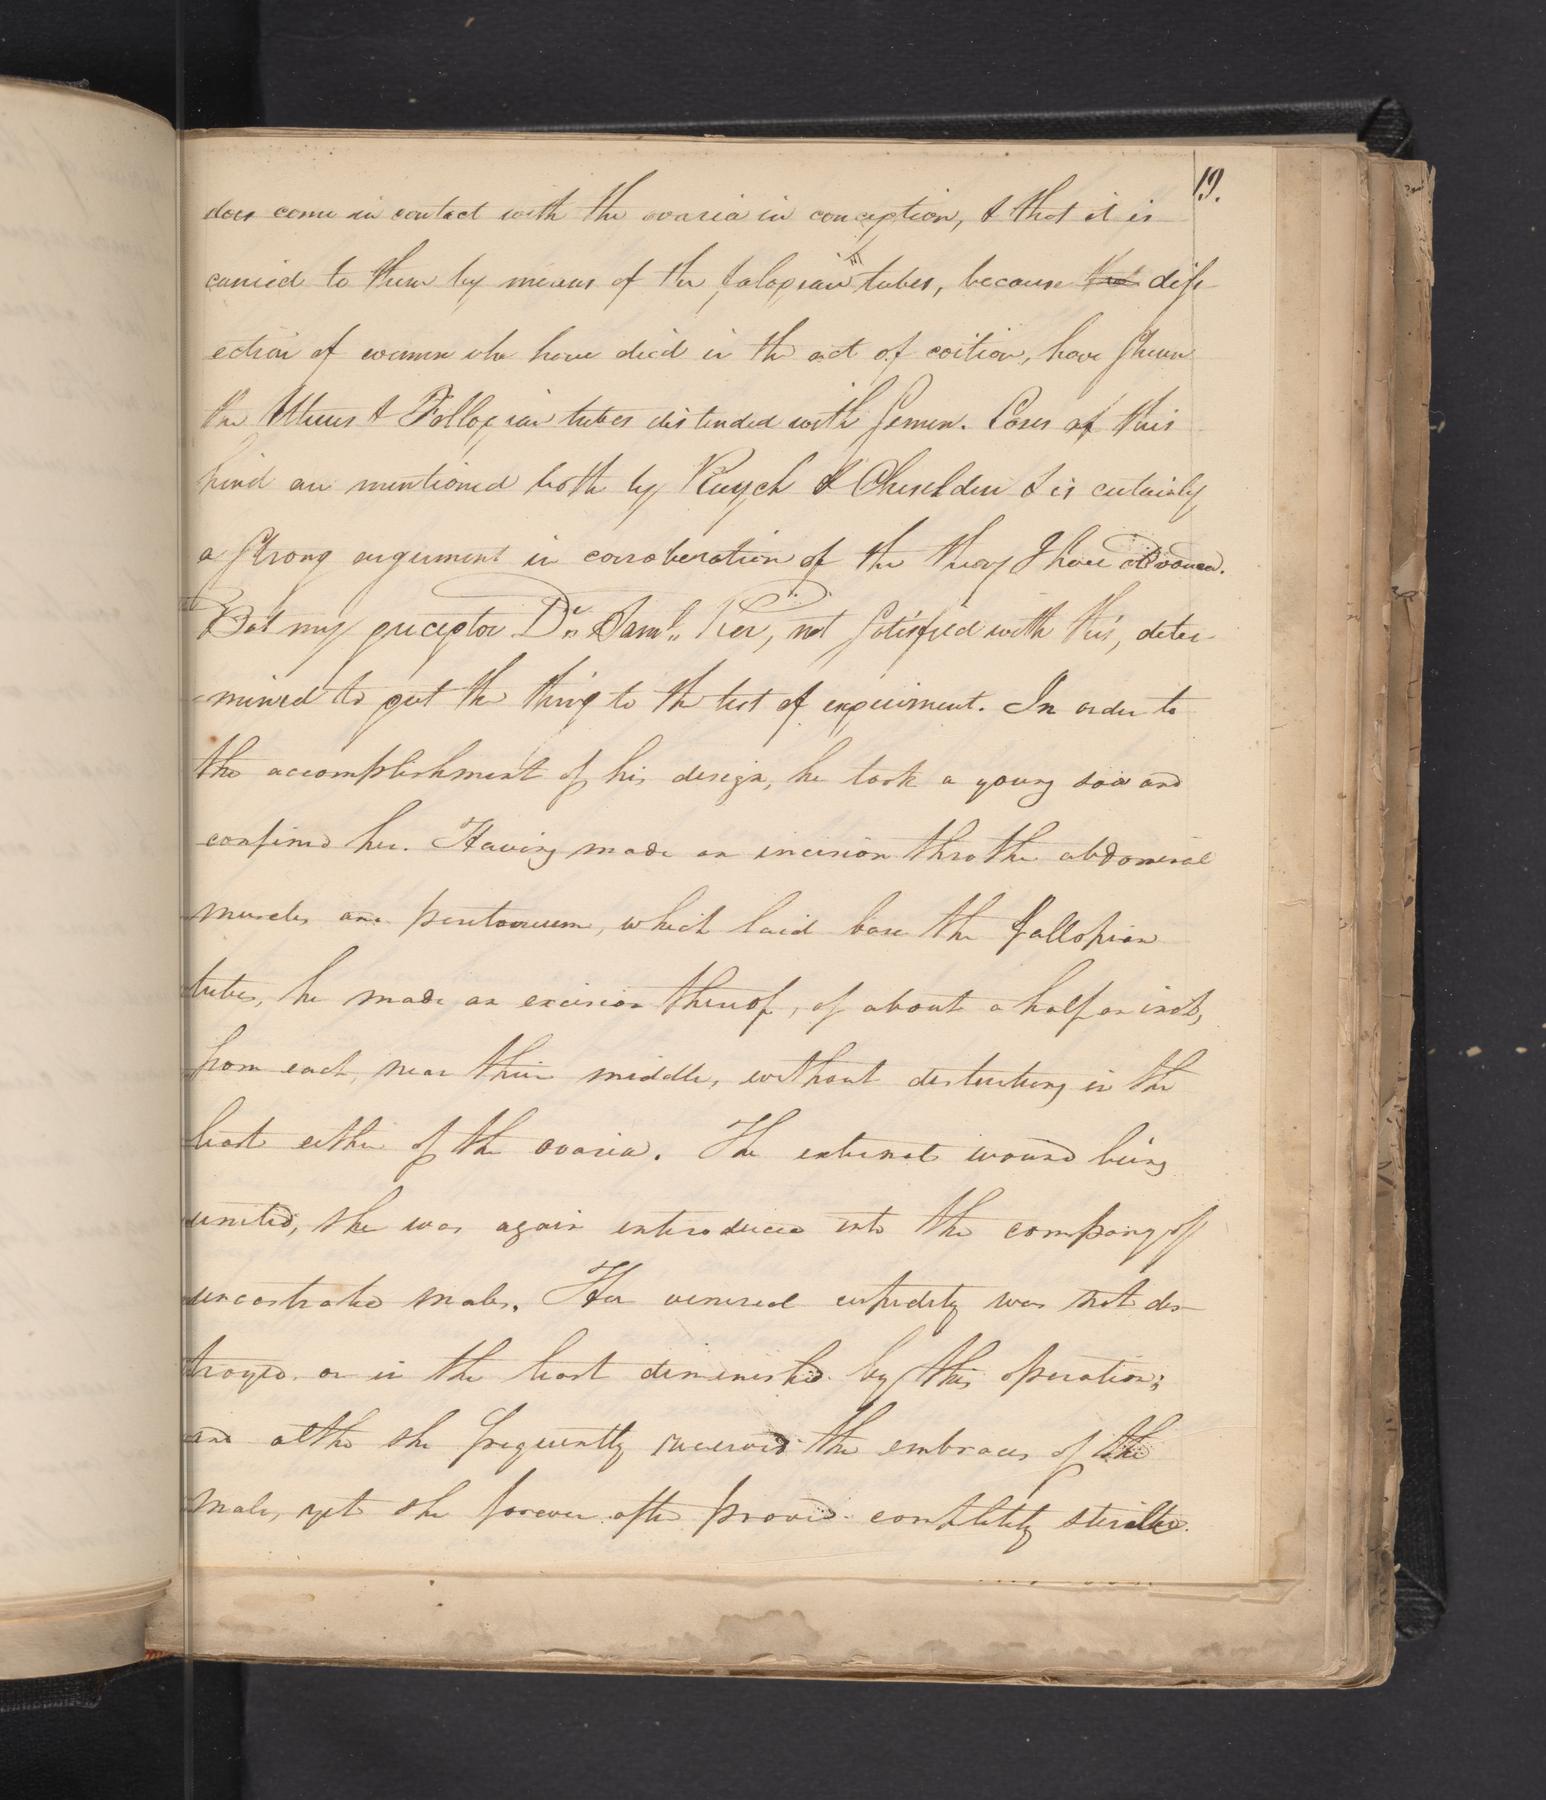 19.
does come in contact with the ovaria in conception, & that it is
carried to them by means of the falopian tubes, because that diss-
ection of women who have died in the act of coition, have shewn
the Uterus & Fallopian tubes distended with semen. Cases of this
kind are mentioned both by Ruysch & Cheselden & is certainly
a strong argument in corroberation of the theory I have advanced.
But my preceptor Dr. Saml. Ker, not satisfied with this, deter-
-mined to put the thing to the test of experiment. In order to
the accomplishment of his design, he took a young sow and
confined her. Having made an incision thro the abdominal
muscles and peritoneum, which laid bare the fallopian
tubes, he made an excision thereof, of about a half an inch,
from each, near their middle, without disturbing in the
least either of the ovaria. The external wound being
united, she was again introduced into the company of
uncastrated males. Her venereal cupidity was not des-
troyed or in the least diminished by this operation;
and altho she frequently received the embraces of the
male, yet she forever after proved completely sterile.